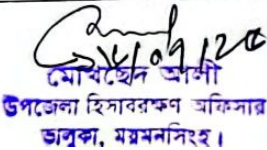 মোখছেদ আলী
উপজেলা হিসাবরক্ষণ অফিসার
ভালুকা, ময়মনসিংহ।